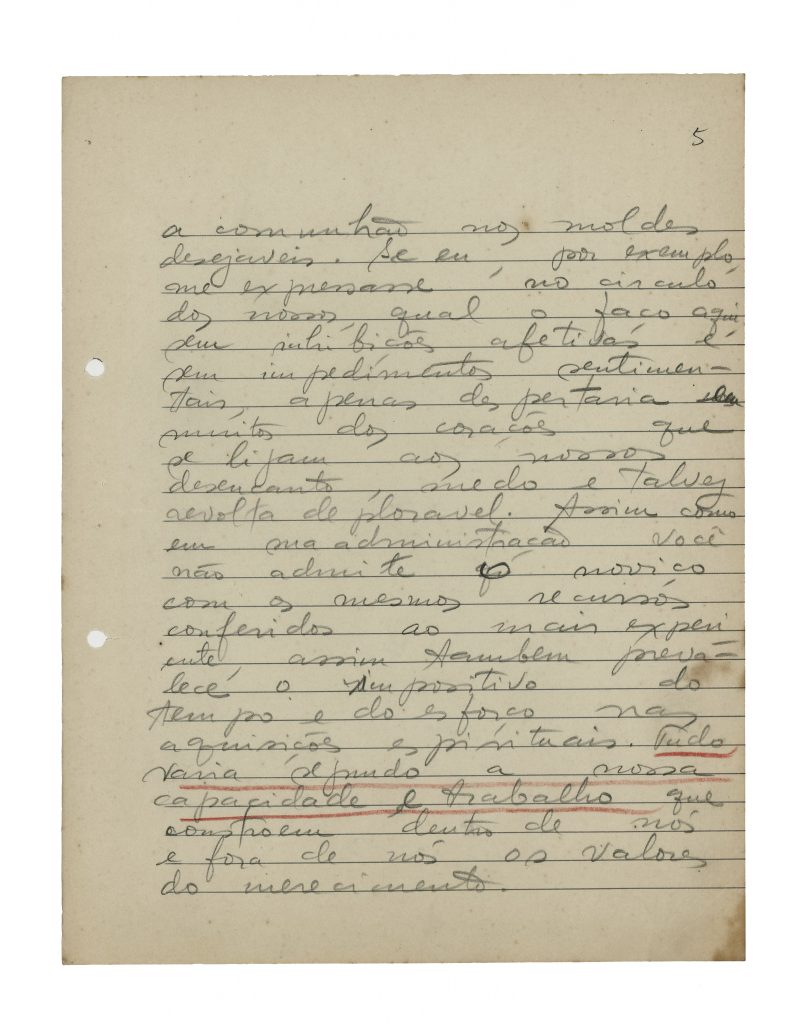 5
a comunhão nos moldes
desejaveis. Se eu, por exemplo,
me expressasse, no circulo
dos nossos, qual o faço aqui
sem inhibições afetivas e
sem impedimentos sentimen-
tais, apenas despertaria em
muitos dos corações que
se ligam aos nossos
desencanto, medo e talvez
revolta deploravel. Assim como
em sua administração você
não admite o noviço
com os mesmos recursos
conferidos ao mais experi
ente, assim tambem preva-
lece o impositivo do
tempo e do esforço nas
aquisições espirituais. Tudo
varia segundo a nossa
capacidade e trabalho que
constroem dentro de nós
e fora de nós os valores
do merecimento.